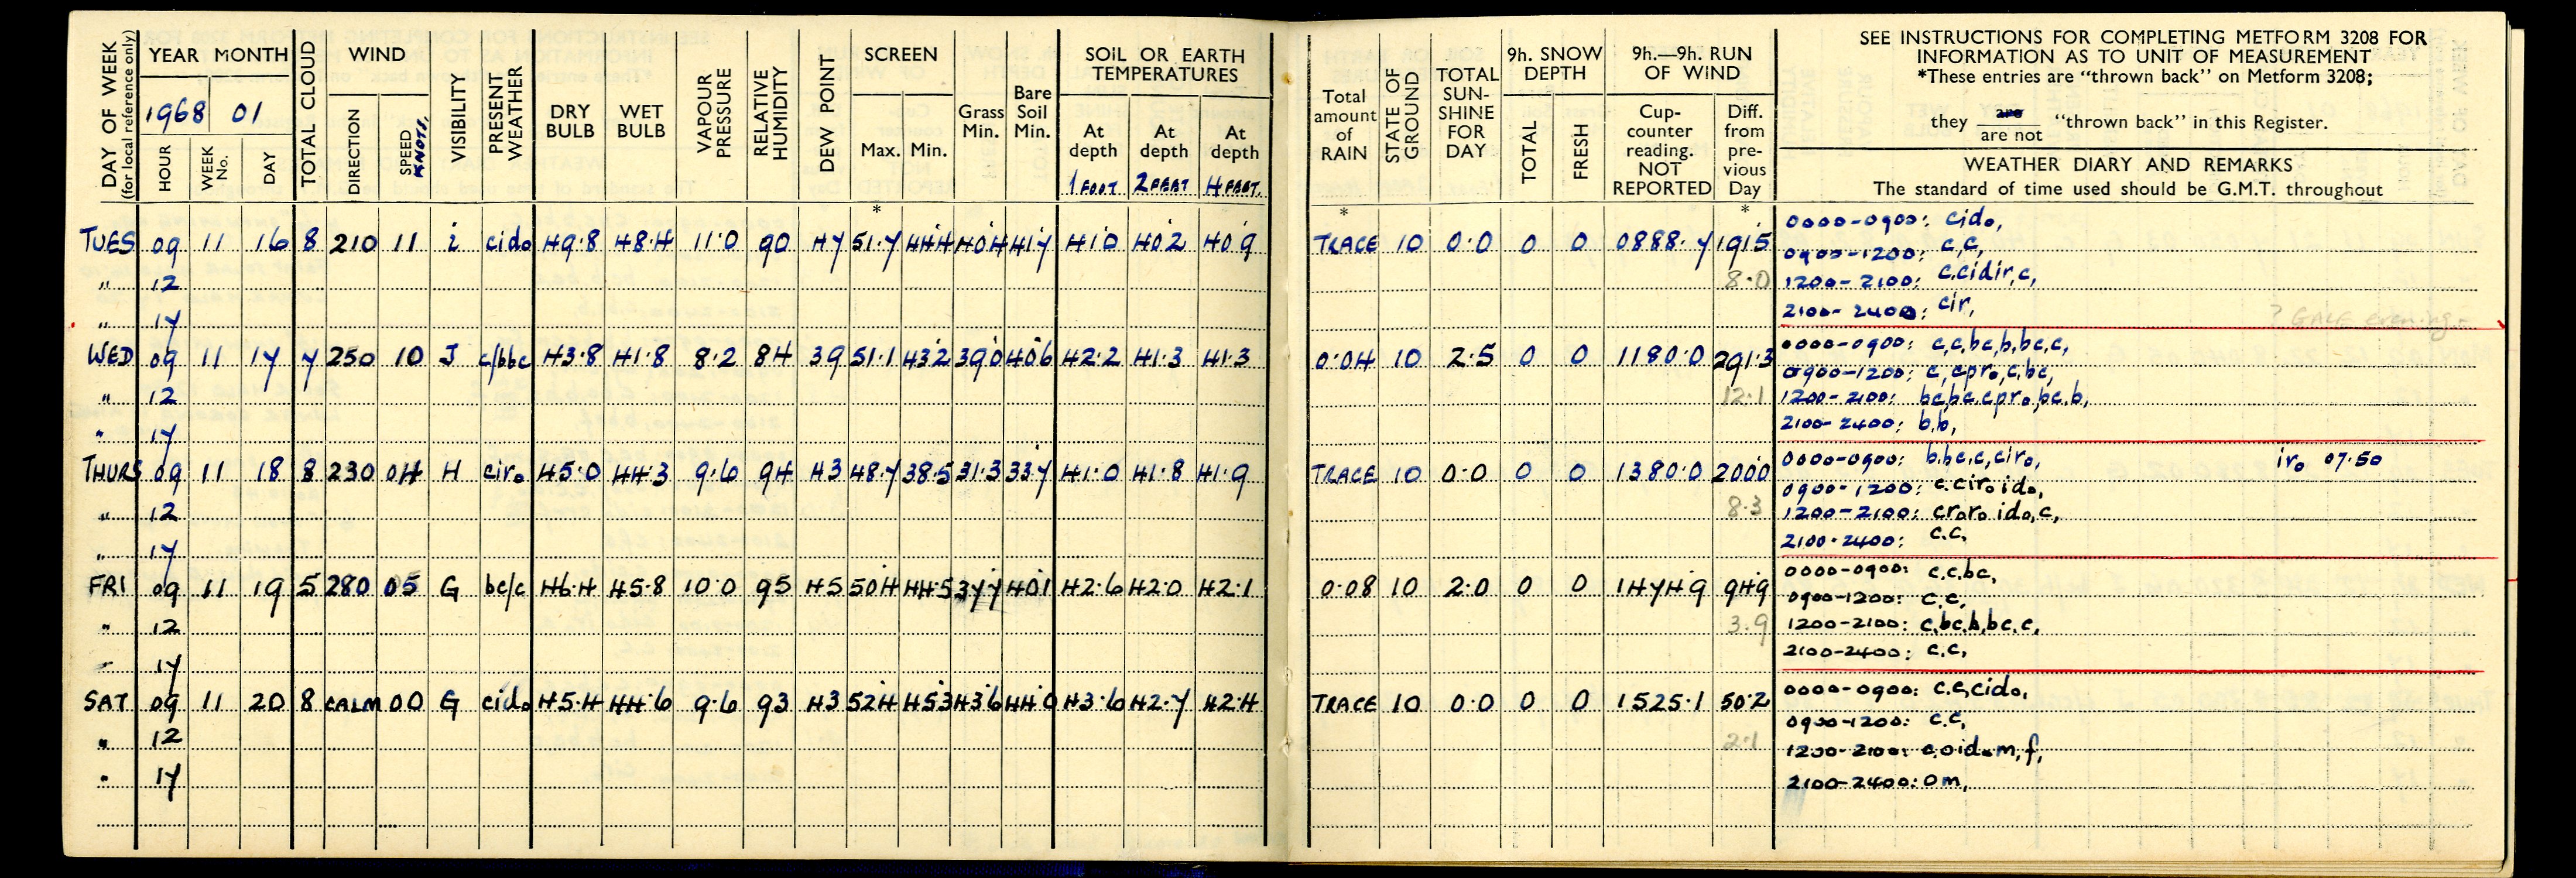 DAY OF WEEK (for local reference only) YEAR MONTH TOTAL CLOUD WIND VISIBILITY PRESENT WEATHER DRY BULB WET BULB VAPOUR PRESSURE RELATIVE HUMIDITY DEW POINT SCREEN Grass Min. Bare Soil Min. SOIL OR EARTH TEMPERATURES
1968 01
HOUR WEEK No. DAY DIRECTION SPEED KNOTS. Max. Min. At depth 1 FOOT At depth 2 FEET At depth 4 FEET.
*
TUES 09 11 16 8 210 11 i cido 49.8 48.4 11.0 90 47 51.7 44.4 40.4 41.7 41.0 40.2 40.9
" 12
" 17
WED 09 11 17 7 250 10 J c/bbc 43.8 41.8 8.2 84 39 51.1 43.2 39.0 40.6 42.2 41.3 41.3
" 12
" 17
THURS 09 11 18 8 230 04 H ciro 45.0 44.3 9.6 94 43 48.7 38.5 31.3 33.7 41.0 41.8 41.9
" 12
" 17
FRI 09 11 19 5 280 05 G bc/c 46.4 45.8 10.0 95 45 50.4 44.5 37.7 40.1 42.6 42.0 42.1
" 12
" 17
SAT 09 11 20 8 CALM 00 G cido 45.4 44.6 9.6 93 43 52.4 45.3 43.6 44.0 43.6 42.7 42.4
" 12
" 17
Total amount of RAIN STATE OF GROUND TOTAL SUN-SHINE FOR DAY 9h. SNOW DEPTH 9h.—9h. RUN OF WIND
TOTAL FRESH Cup-counter reading. NOT REPORTED Diff. from pre-vious Day
SEE INSTRUCTIONS FOR COMPLETING METFORM 3208 FOR
INFORMATION AS TO UNIT OF MEASUREMENT
*These entries are "thrown back" on Metform 3208;
they are / are not "thrown back" in this Register.
WEATHER DIARY AND REMARKS
The standard of time used should be G.M.T. throughout
* *
TRACE 10 0.0 0 0 0888.7 191.5 0000-0900: cido,
0900-1200: c,c,
8.0 1200-2100: c.cidir,c,
2100-2400: cir, ? GALE evening
0.04 10 2.5 0 0 1180.0 291.3 0000-0900: c,c,bc,b,bc,c,
0900-1200: c,cpro,c,bc,
12.1 1200-2100: bc,bc,cpro,bc,b,
2100-2400: b,b,
TRACE 10 0.0 0 0 1380.0 200.0 0000-0900: b.bc,c,ciro, iro 07.50
0900-1200: c.ciro ido,
8.3 1200-2100: croro ido,c,
2100-2400: c.c,
0.08 10 2.0 0 0 1474.9 94.9 0000-0900: c.c,bc,
0900-1200: c.c,
3.9 1200-2100: c,bc.b,bc.c,
2100-2400: c.c,
TRACE 10 0.0 0 0 1525.1 50.2 0000-0900: c.c,cido,
0900-1200: c.c,
2.1 1200-2100: c.oidom,f,
2100-2400: om,